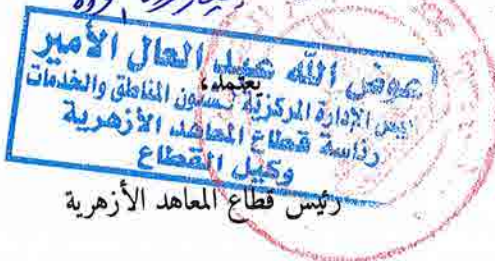 عوض الله عبد العال الأمير
يعتمد،
رئيس الإدارة المركزية لشئون المناطق والخدمات
رئاسة قطاع المعاهد الأزهرية
وكيل القطاع
رئيس قطاع المعاهد الأزهرية